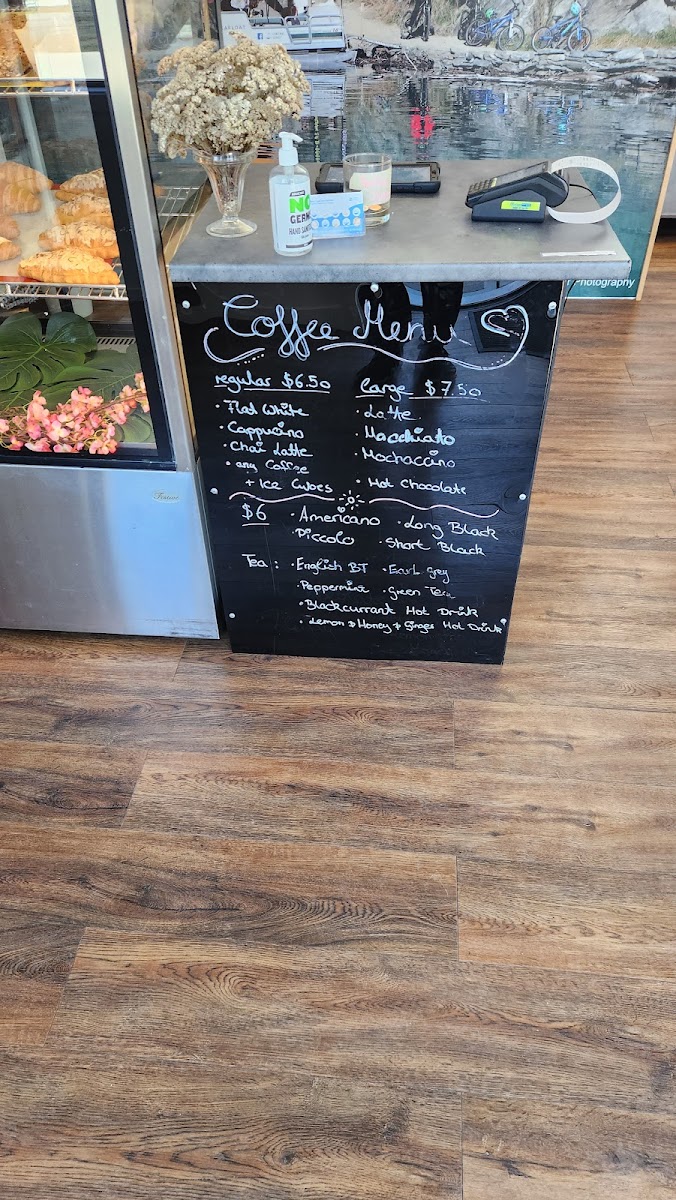 NO
GERMS
HAND SANITISER
Photography
Coffee Menu
regular $6.50
large $7.50
• Flat White
• Cappucino
• Chai Latte
• any Coffee
+ Ice Cubes
• Latte
• Macchiato
• Mochaccino
• Hot Chocolate
$6
• Americano • Long Black
Piccolo • Short Black
Tea : • English BT • Earl Grey
• Peppermint • Green Tea
• Blackcurrant Hot Drink
• Lemon & Honey & Ginger Hot Drink